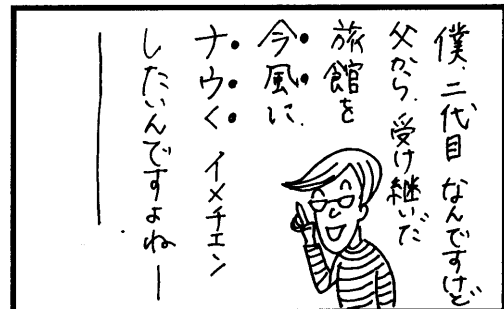 僕、二代目なんですけど
父から、受け継いだ
旅館を
今風に、
ナウく イメチェン
したいんですよねー